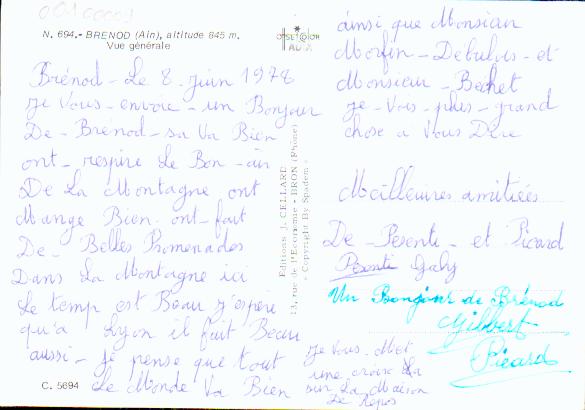 N. 694.- BRENOD (Ain), altitude 845 m.
Vue générale
Brénod - Le 8. Juin 1978
Je Vous - envoie - un Bonjour
De - Brénod - sa Va Bien
ont - respire Le Bon - air
De La Montagne ont
Mange Bien - ont - fait
De - Belles Promenades
Dans La Montagne ici
Le temp est Beau j'espère
qu'a Lyon il fait Beau
aussi - je pense que tout
Le Monde Va Bien
C. 5694
Editions J. CELLARD
13, rue de l'Economie - BRON (Rhône)
- Copyright By Spadem -
ainsi que Monsieur
Morfin - Debulois - et
Monsieur - Bechet
je - Vois - plus - grand
chose a Vous Dire
Meilleures amitiées
De - Pesenti - et Picard
Pesenti Gaby
Un Bonjour de Brénod
Gilbert
Picard
Je Vous - Met
une croix
sur La Maison
De Repos